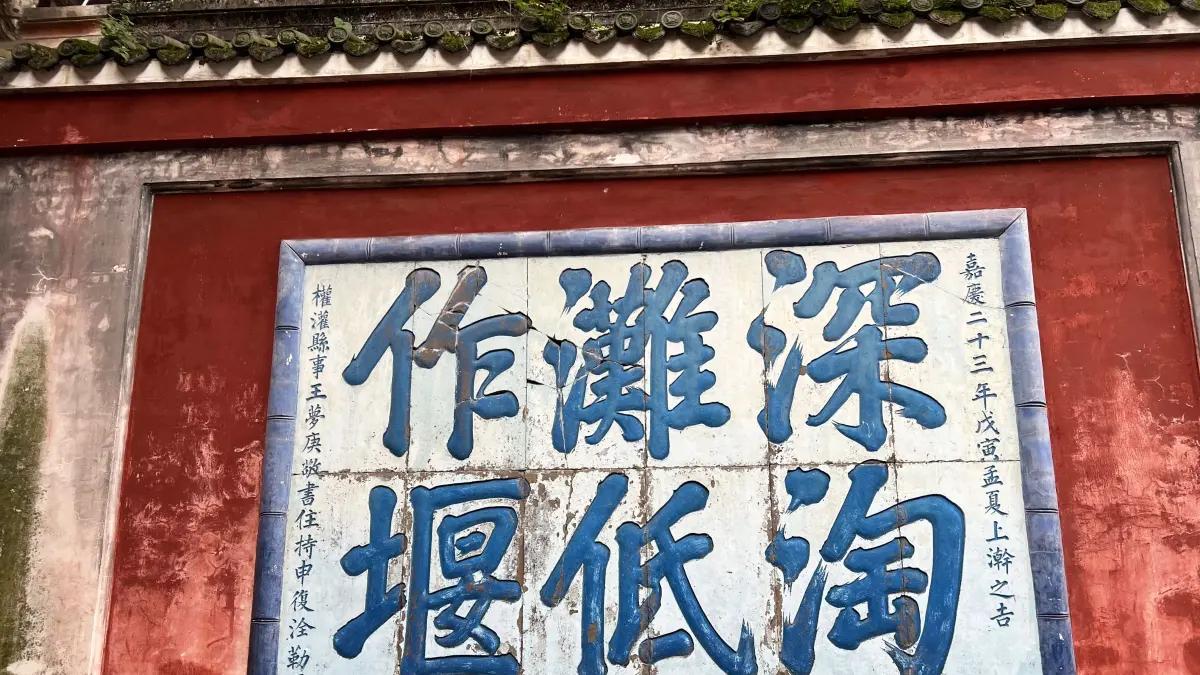 嘉慶二十三年戊寅孟夏上瀚之吉
深淘
灘低
作堰
權灌縣事王夢庚敬書住持申復淦勒